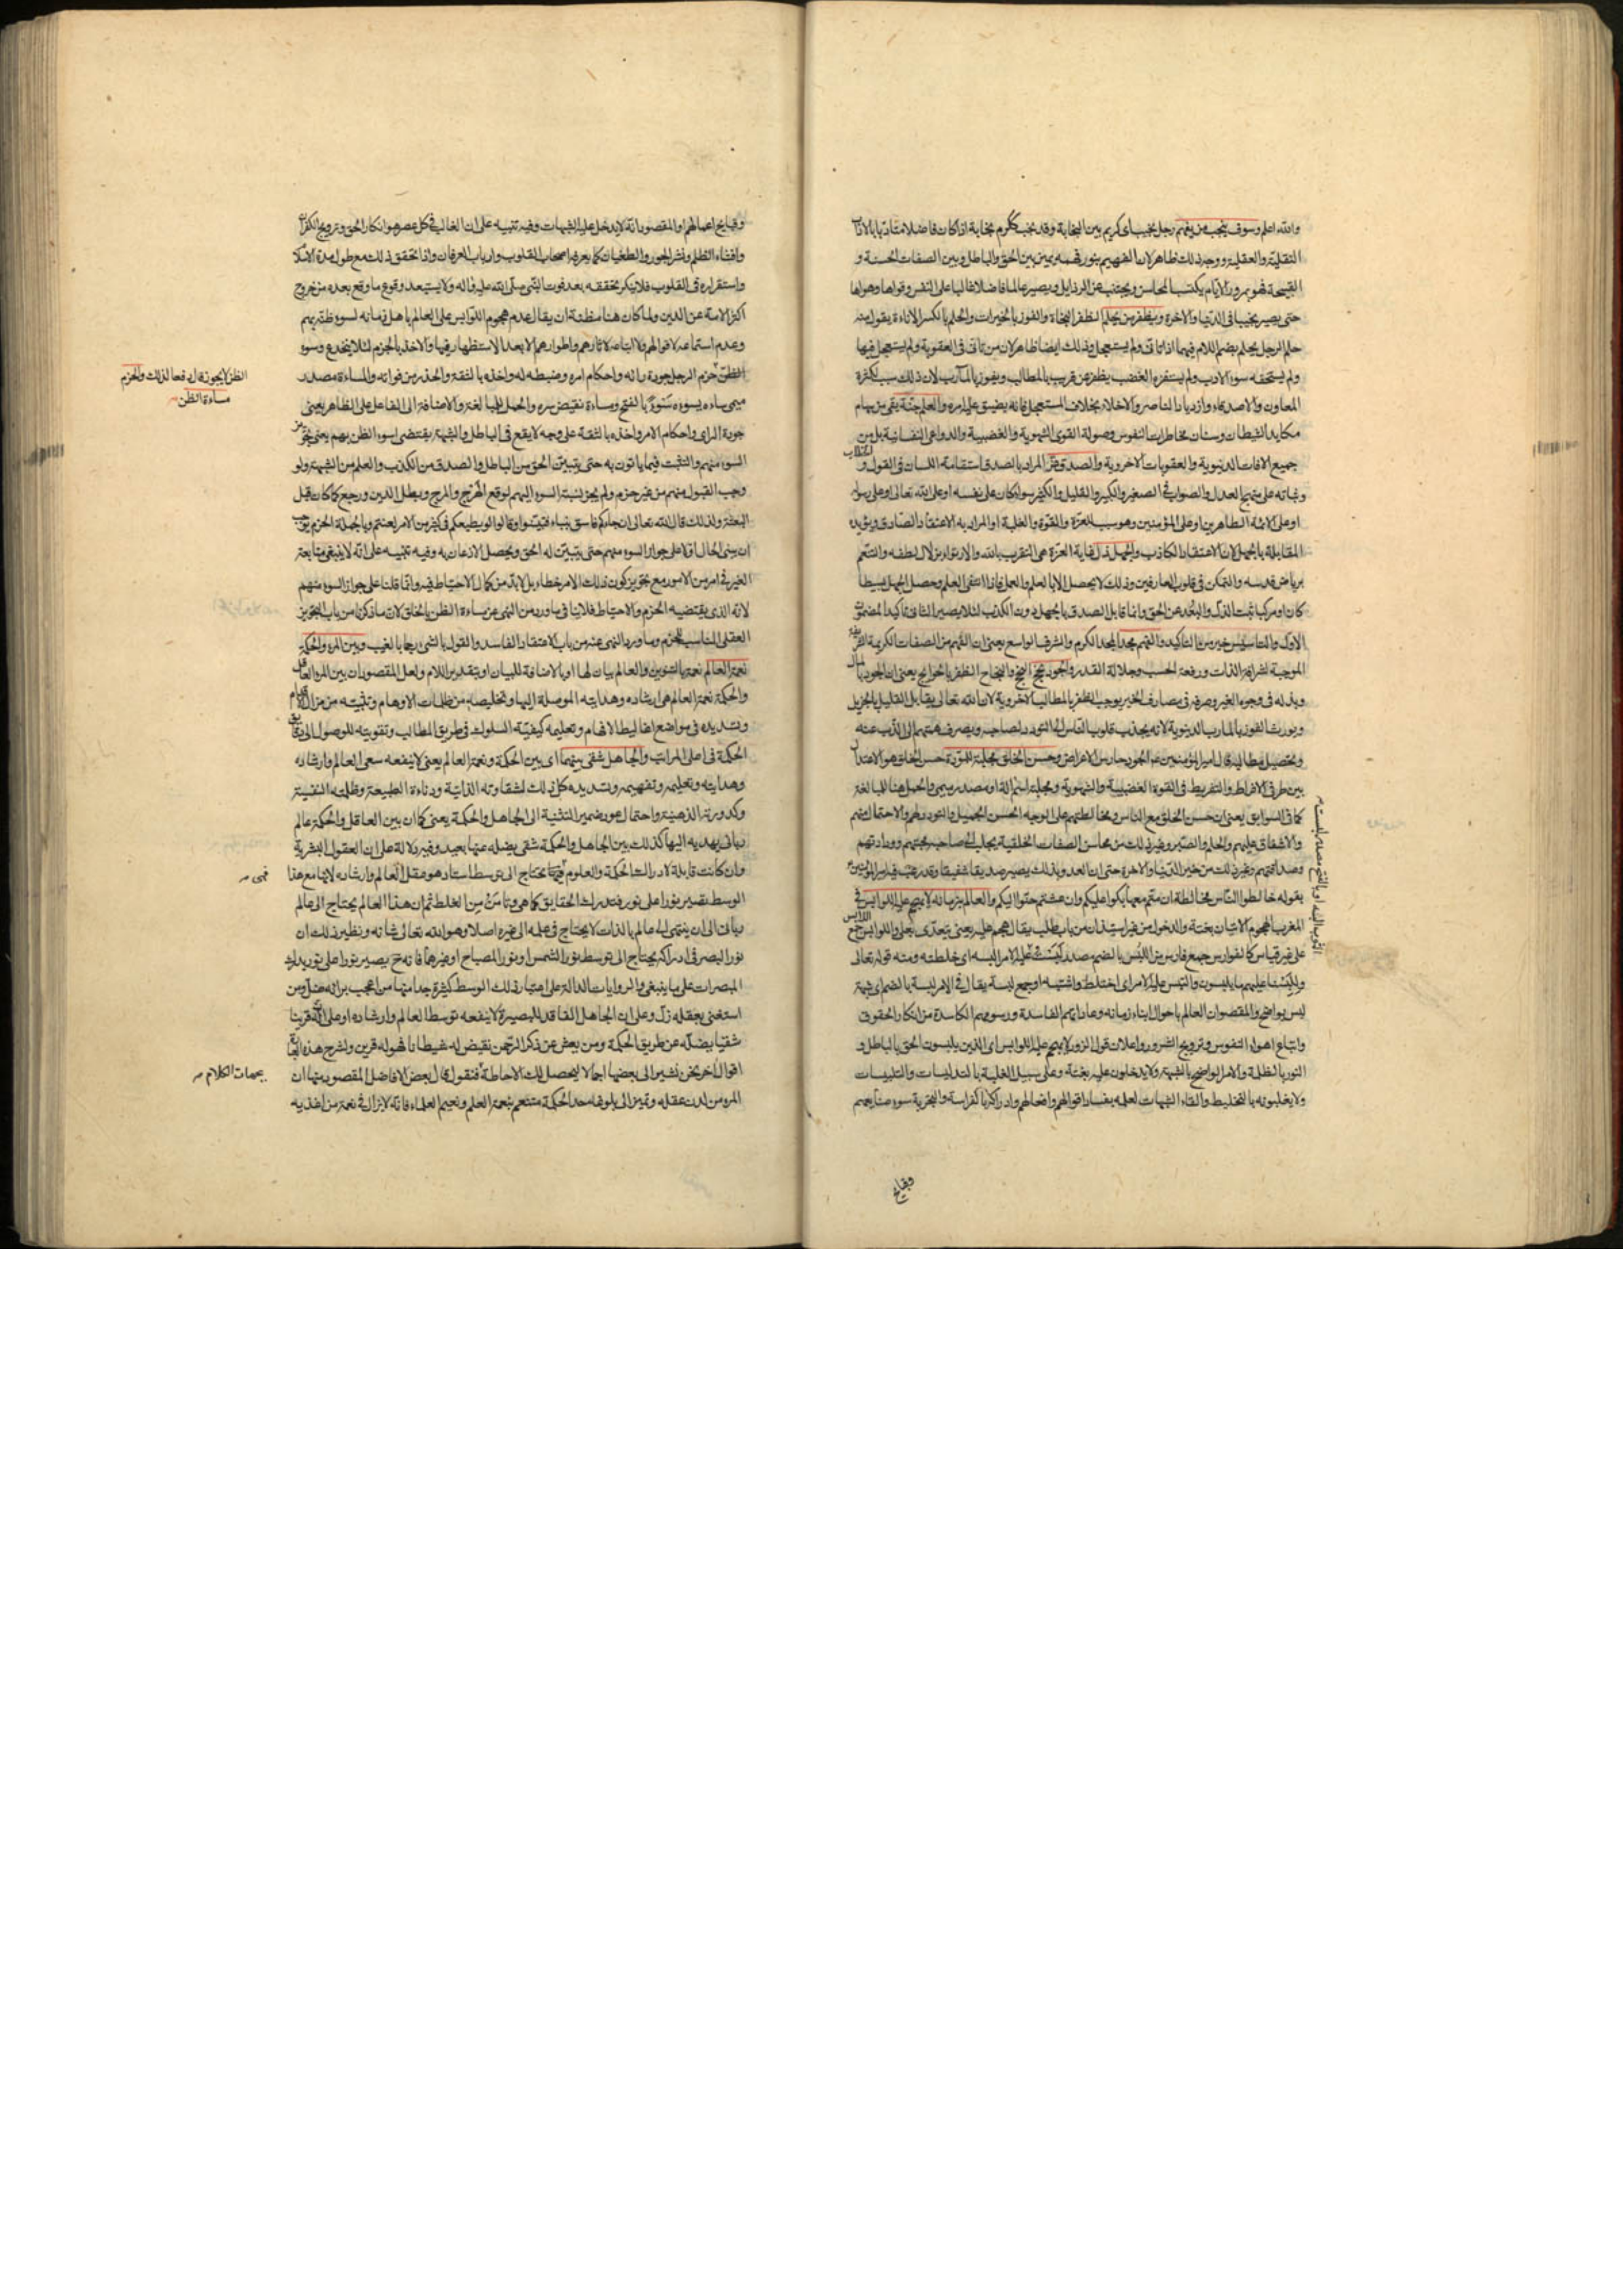 والله اعلم وسوف ينجب من يفهم رجل نجيب اى كريم بين النجابة وقد نجب ككرم نجابة اذا كان فاضلا متادبا بالاداب
النقلية والعقلية ووجه ذلك ظاهر لان الفهيم بنور فهمه يميز بين الحق والباطل وبين الصفات الحسنة و
القبيحة فهو بمرور الايام يكتسب المحاسن ويجتنب عن الرذايل ويصير عالما فاضلا غالبا على النفس وقواها وهواها
حتى يصير نجيبا فى الدنيا والاخرة ويظفر من يحلم الظفر النجاة والفوز بالخيرات والحلم بالكسر الاناءة يقول منه
حلم الرجل يحلم بضم اللام فيهما اذا تانى ولم يستعجل وذلك ايضا ظاهر لان من تانى فى العقوبة ولم يستعجل فيها
ولم يستخفه سوء الادب ولم يستفزه الغضب يظفر عن قريب بالمطالب ويفوز بالمآرب لان ذلك سبب لكثرة
المعاون والاصدقاء وازدياد الناصر والاخلاء بخلاف المستعجل فانه يضيق عليه امره والعلم جنة يقى من سهام
مكايد الشيطان وسنان مخاطرات النفوس وصولة القوى الشهوية والغضبية والدواعى النفسانية بل من
جميع الافات الدنيوية والعقوبات الاخروية والصدق عز المراد بالصدق استقامة اللسان فى القول و
وثباته على منهج العدل والصواب فى الصغير والكبير والقليل والكثير سواء كان على نفسه او على الله تعالى او على رسوله
او على الائمة الطاهرين او على المؤمنين وهو سبب للعزة والقوة والغلبة او المراد به الاعتقاد الصادق ويؤيده
المقابلة بالجهل لان الاعتقاد الكاذب والجهل ذل لغاية العزة هى التقرب بالله والارتواء بزلال لطفه والتنعم
برياض قدسه والتمكن فى قلوب العارفين وذلك لا يحصل الا بالعلم والعمل فاذا انتفى العلم وحصل الجهل بسيطا
كان او مركبا ثبت الذل والبعد عن الحق وانما قابل الصدق بالجهل دون الكذب لئلا يصير الثانى تاكيدا لمضمون
الاول والتاسيس خير من التاكيد والفهم مجد المجد الكرم والشرف الواسع يعنى ان الفهم من الصفات الكريمة
الموجبة لشرافة الذات ورفعة الحسب وجلالة القدر والجود نجح النجح والنجاح الظفر بالحوائج يعنى ان الجود بالمال
وبذله فى وجوه الغير وصرفه فى مصارف الخير يوجب الظفر بالمطالب الاخروية لان الله تعالى يقابل القليل بالجزيل
ويورث الفوز بالمارب الدنيوية لانه يجذب قلوب الناس الى التودد لصاحبه ويصرف همتهم الى الذب عنه
وتحصيل مطالبه قال امير المؤمنين ع الجود حارس الاعراض وحسن الخلق مجلبة للمودة حسن الخلق هو الاعتدال
بين طرفى الافراط والتفريط فى القوة الغضبية والشهوية ومجلبة اسم الة او مصدر ميمى والحمل هنا للمبالغة
كما فى السوابق يعنى ان حسن الخلق مع الناس ومخالطتهم على الوجه الحسن الجميل والتودد لهم والاحتمال عنهم
والاشفاق عليهم والحلم والصبر وغير ذلك من محاسن الصفات الخلقية يجلب الى صاحبه محبتهم وودادتهم
وصداقتهم وغير ذلك من خير الدنيا والاخرة حتى ان العدو بذلك يصير صديقا شفيقا وقد رغب فيه امير المؤمنين ع
بقوله خالطوا الناس مخالطة ان متم معها بكوا عليكم وان عشتم حنوا اليكم والعالم بزمانه لا يهجم عليه اللوابس فى
المغرب الهجوم الاتيان بغتة والدخول من غير استيذان من باب طلب يقال هجم عليه يعنى يتعدى بعلى واللوابس جمع
اللابس
على غير قياس كالفوارس جمع فارس من اللبس بالضم مصدر لبست عليه الامر البسه اى خلطته ومنه قوله تعالى
وللبسنا عليهم ما يلبسون والتبس عليه الامر اى اختلط واشتبه او جمع لبسة يقال فى الامر لبسة بالضم اى شبهة
ليس بواضح والمقصود ان العالم باحوال ابناء زمانه وعاداتهم الفاسدة ورسومهم الكاسدة من انكار الحقوق
واتباع اهواء النفوس وترويج الشرور واعلان قول الزور لا يهجم عليه اللوابس اى الذين يلبسون الحق بالباطل و
النور بالظلمة والامر الواضح بالشبهة ولا يدخلون عليه بغتة وعلى سبيل الغلبة بالتدليسات والتلبيسات
ولا يغلبونه بالتخليط والقاء الشبهات لعلمه بفساد اقوالهم وافعالهم وادراكه بالفراسة والتجربة سوء صنايعهم
وقبايح
وقبايح اعمالهم او المقصود انه لا يدخل عليه الشبهات وفيه تنبيه على ان الغالب فى كل عصر هو انكار الحق وترويج الكفران
وافشاء الظلم ونشر الجور والطغيان كما يعرفه اصحاب القلوب وارباب العرفان واذا تحقق ذلك مع طول مدة الاسلام
واستقراره فى القلوب فلا ينكر تحققه بعد فوت النبى صلى الله عليه واله ولا يستبعد وقوع ما وقع بعده من خروج
اكثر الامة عن الدين ولما كان هنا مظنة ان يقال عدم هجوم اللوابس على العالم باهل زمانه لسوء ظنه بهم
وعدم استماعه لاقوالهم واتباعه لاثارهم واطوارهم الا بعد الاستظهار فيها والاخذ بالجزم لئلا ينخدع وسوء
الظن لا يجوز قال دفعا لذلك والحزم
مساءة الظن
الظن حزم الرجل جودة رائه واحكام امره وضبطه له واخذه بالثقة والحذر من فواته والمساءة مصدر
ميمى ساءه يسوءه سوءا بالفتح ومساءة نقيض سره والحمل للمبالغة والاضافة الى الفاعل على الظاهر يعنى
جودة الراى واحكام الامر واخذه بالثقة على وجه لا يقع فى الباطل والشبهة يقتضى سوء الظن بهم يعنى تجويز
السوء منهم والتثبت فيما ياتون به حتى يتبين الحق من الباطل والصدق من الكذب والعلم من الشبهة ولو
وجب القبول منهم من غير حزم ولم يجز نسبة السوء اليهم لوقع الهرج والمرج وبطل الدين ورجع كما كان قبل
البعثة ولذلك قال الله تعالى ان جاءكم فاسق بنباء فتبينوا وقال لو يطيعكم فى كثير من الامر لعنتم وبالجملة الحزم يوجب
ان يبنى الحال اولا على جواز السوء منهم حتى يتبين له الحق ويحصل الاذعان به وفيه تنبيه على انه لا ينبغى متابعة
الغير فى امر من الامور مع تجويز كون ذلك الامر خطاء بل لابد من كمال الاحتياط فيه وانما قلنا على جواز السوء منهم
لانه الذى يقتضيه الحزم والاحتياط فلا ينافى ما ورد من النهى عن مساءة الظن بالخلق لان ما ذكرنا من باب التجويز
العقلى المناسب للحزم وما ورد النهى عنه من باب الاعتقاد الفاسد والقول بالشئ رجما بالغيب وبين المرء والحكمة
نعمة العالم نعمة بالتنوين والعالم بيان لها او بالاضافة للبيان او بتقدير اللام ولعل المقصود ان بين المرء العاقل
والحكمة نعمة العالم هى ارشاده وهدايته الموصلة اليها وتخليصه من ظلمات الاوهام وتثبيته من مزال الاقدام
وتسديده فى مواضع اغاليط الافهام وتعليمه كيفية السلوك فى طريق المطالب وتقويته للوصول الى حقايق
الحكمة فى اعلى المراتب والجاهل شقى بينهما اى بين الحكمة ونعمة العالم يعنى لا ينفعه سعى العالم وارشاده
وهدايته وتعليمه وتفهيمه وتسديده كل ذلك لشقاوته الذاتية ودناءة الطبيعة وظلمته النفسية
وكدورته الذهنية واحتمال عود ضمير التثنية الى الجاهل والحكمة يعنى كما ان بين العاقل والحكمة عالم
ربانى يهديه اليها كذلك بين الجاهل والحكمة شقى يضله عنها بعيد وفيه دلالة على ان العقول البشرية
وان كانت قابلة لادراك الحكمة والعلوم تحتاج الى توسط استاد هو عقل العالم وارشاده لانها مع هذا
فهى
الوسط تصير نورا على نور فتدرك الحقايق كما هى وتامن من الغلط ثم ان هذا العالم يحتاج الى عالم
ربانى الى ان ينتهى الى عالم بالذات لا يحتاج فى علمه الى غيره اصلا وهو الله تعالى شانه ونظير ذلك ان
نور البصر فى ادراكه يحتاج الى توسط نور الشمس او نور المصباح او غيرهما فانه ح يصير نورا على نور يدرك
المبصرات على ما ينبغى والروايات الدالة على اعتبار ذلك الوسط كثيرة جدا منها من اعجب برائه ضل ومن
استغنى بعقله زل وعلى ان الجاهل الفاقد للبصيرة لا ينفعه توسط العالم وارشاده او على ان له قرينا
شقيا يضله عن طريق الحكمة ومن يعش عن ذكر الرحمن نقيض له شيطانا فهو له قرين ولشرح هذه
اقوال اخر نحن نشير الى بعضها اجمالا ليحصل لك الاحاطة فنقول قال بعض الافاضل المقصود منها ان
بجهات الكلام
المرء من لدن عقله وتميزه الى بلوغه حد الحكمة متنعم بنعمة العلم ونعيم العلماء فانه لا يزال فى نعمة من اغذيه